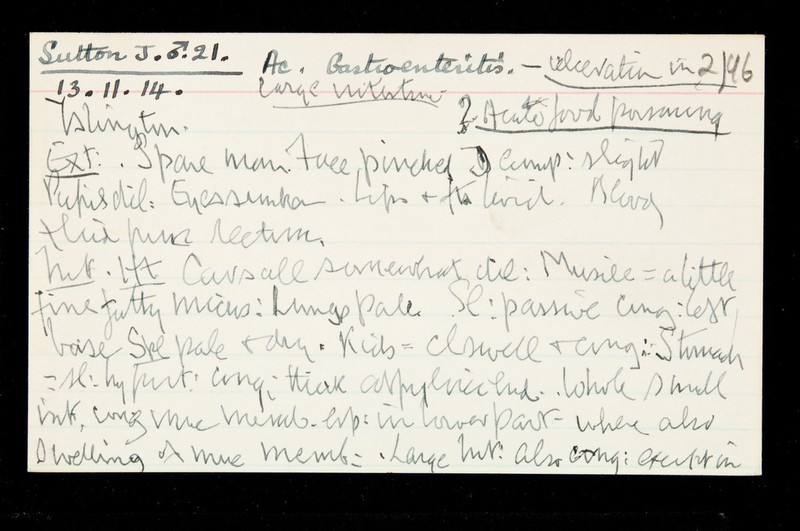 Sutton J. ♂. 21. Ac. Gastroenteritis. – ulceration in 2/46
13.11.14. Large intestine
Islington. ? Acute food poisoning
Ext: . Spare man. Face pinched comp: slight
Pupils dil: Eyes sunken . Lips + livid. Blood
fluid from rectum.
Int. Ht Cavs all somewhat dil: Muscle = a little
fine fatty micros: Lungs pale. Sl: passive cong: left
base Spl pale + dry. Kids = cl swell + cong: Stomach
= sl: cong: thick at pyloric end. Whole small
int. cong muc memb. esp: in lower part – where also
swelling of muc memb = . Large Int: also cong: except in